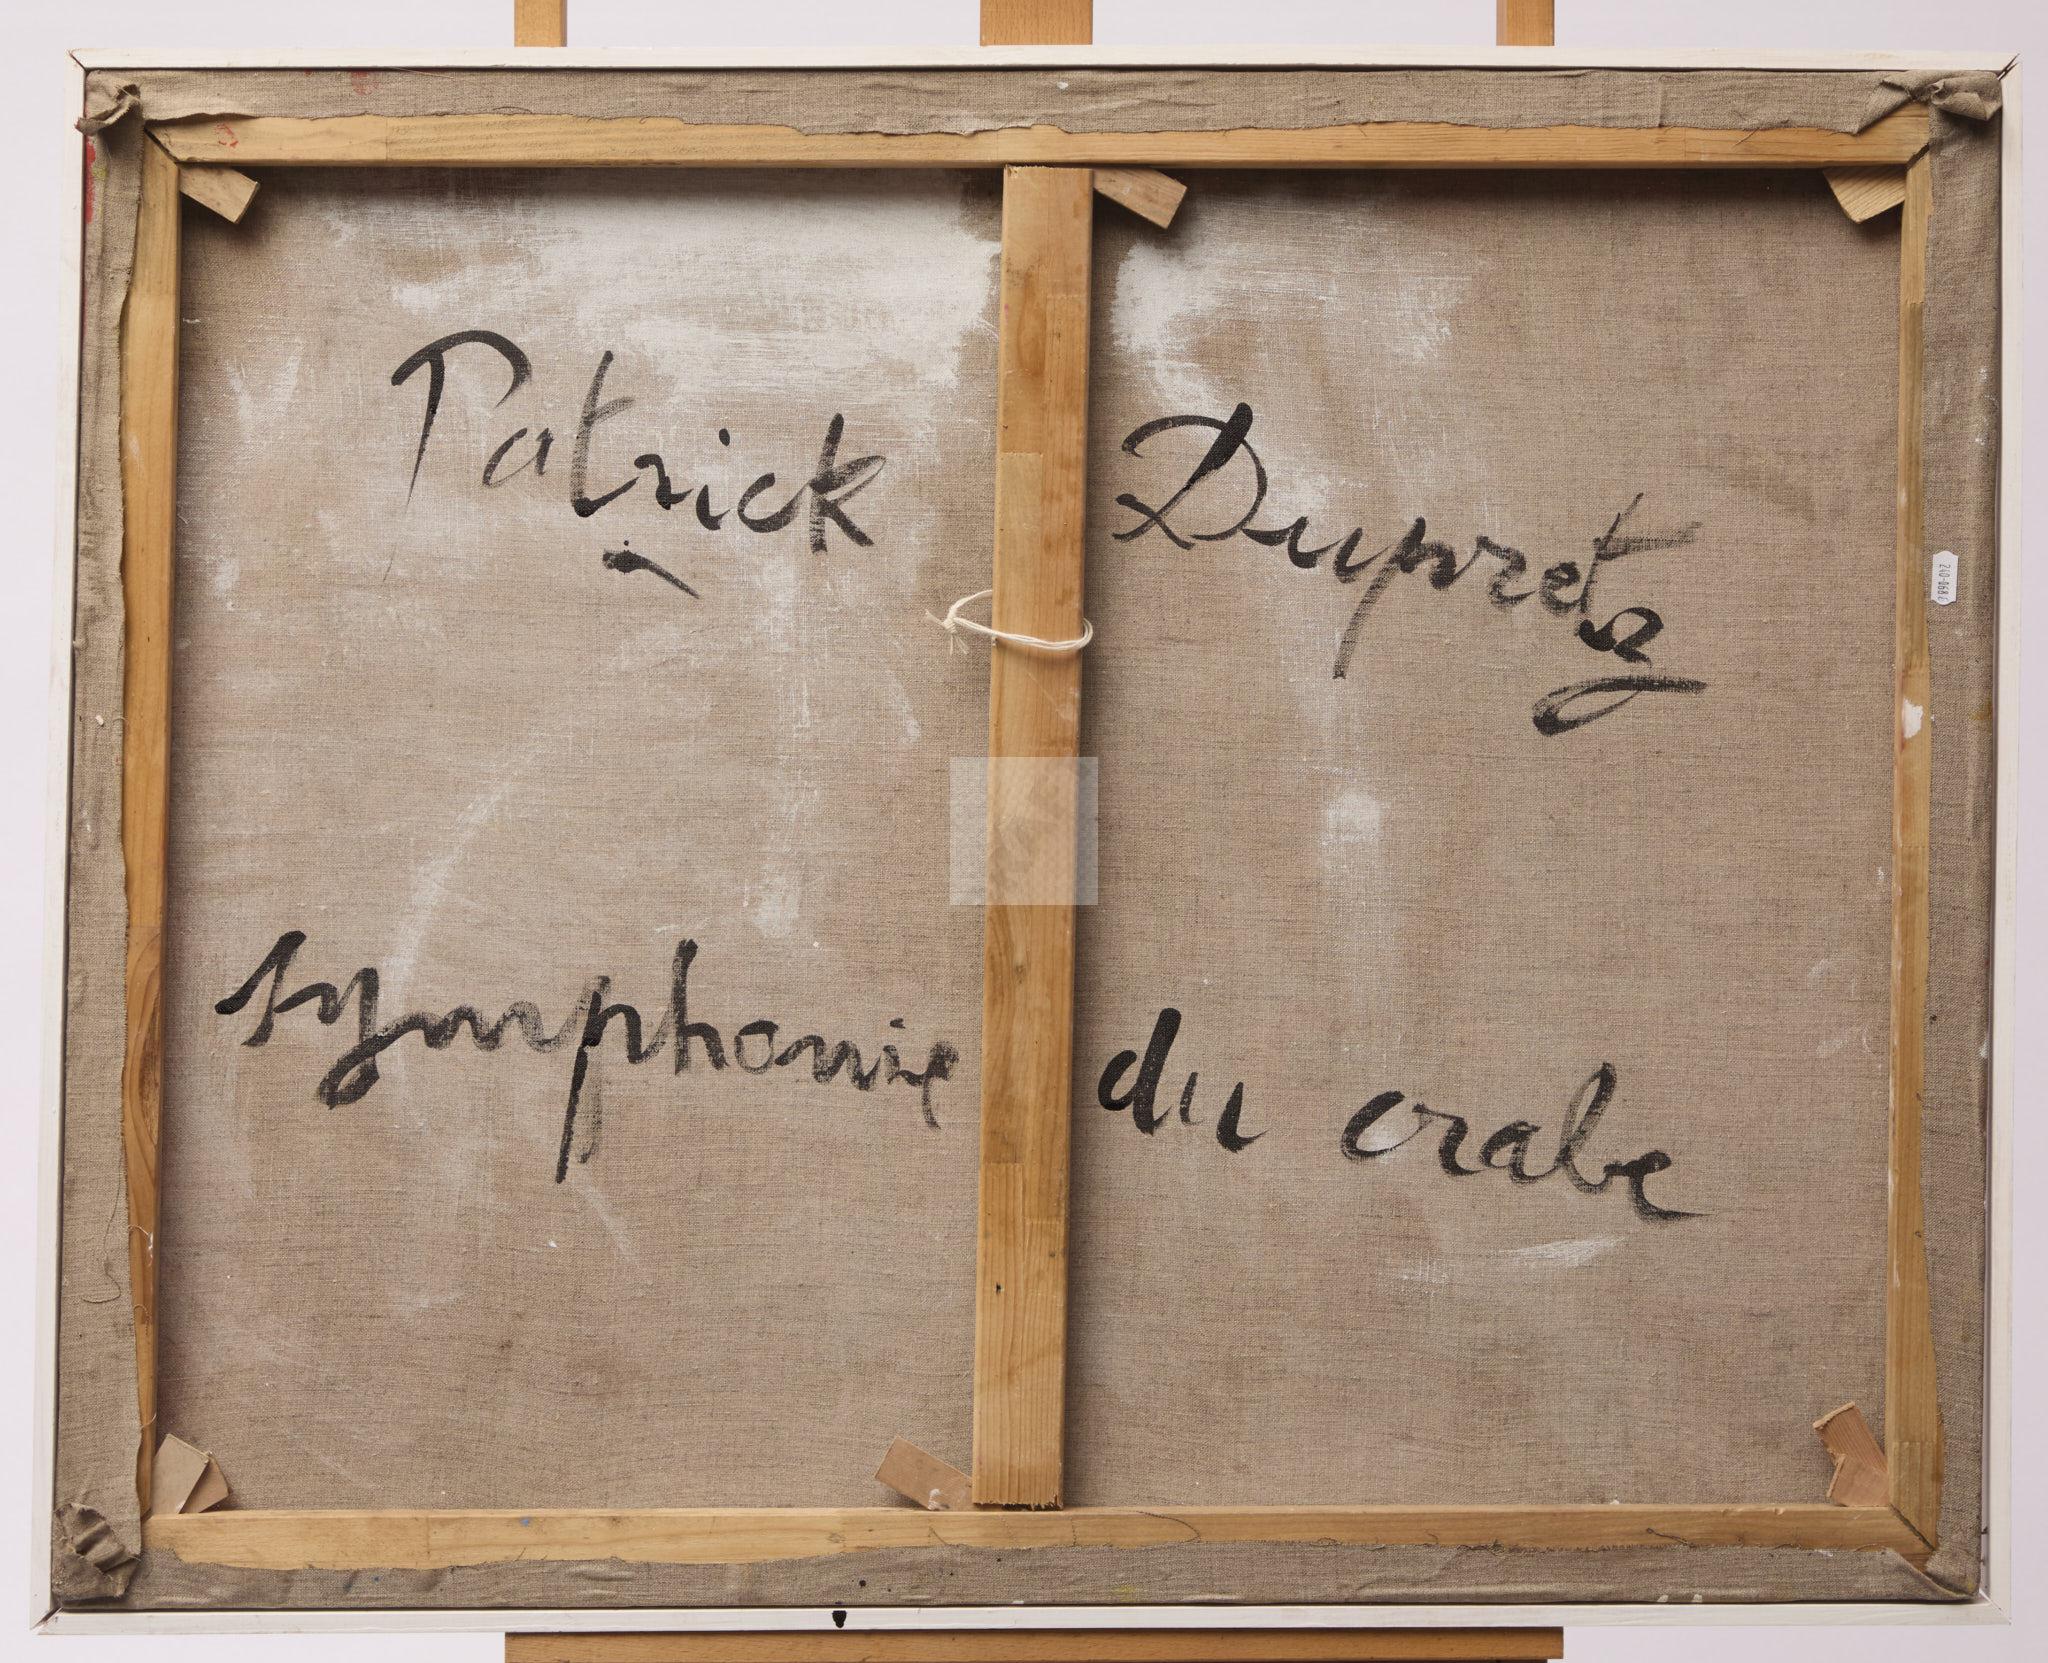 Patrick Dupretz
symphonie du crabe